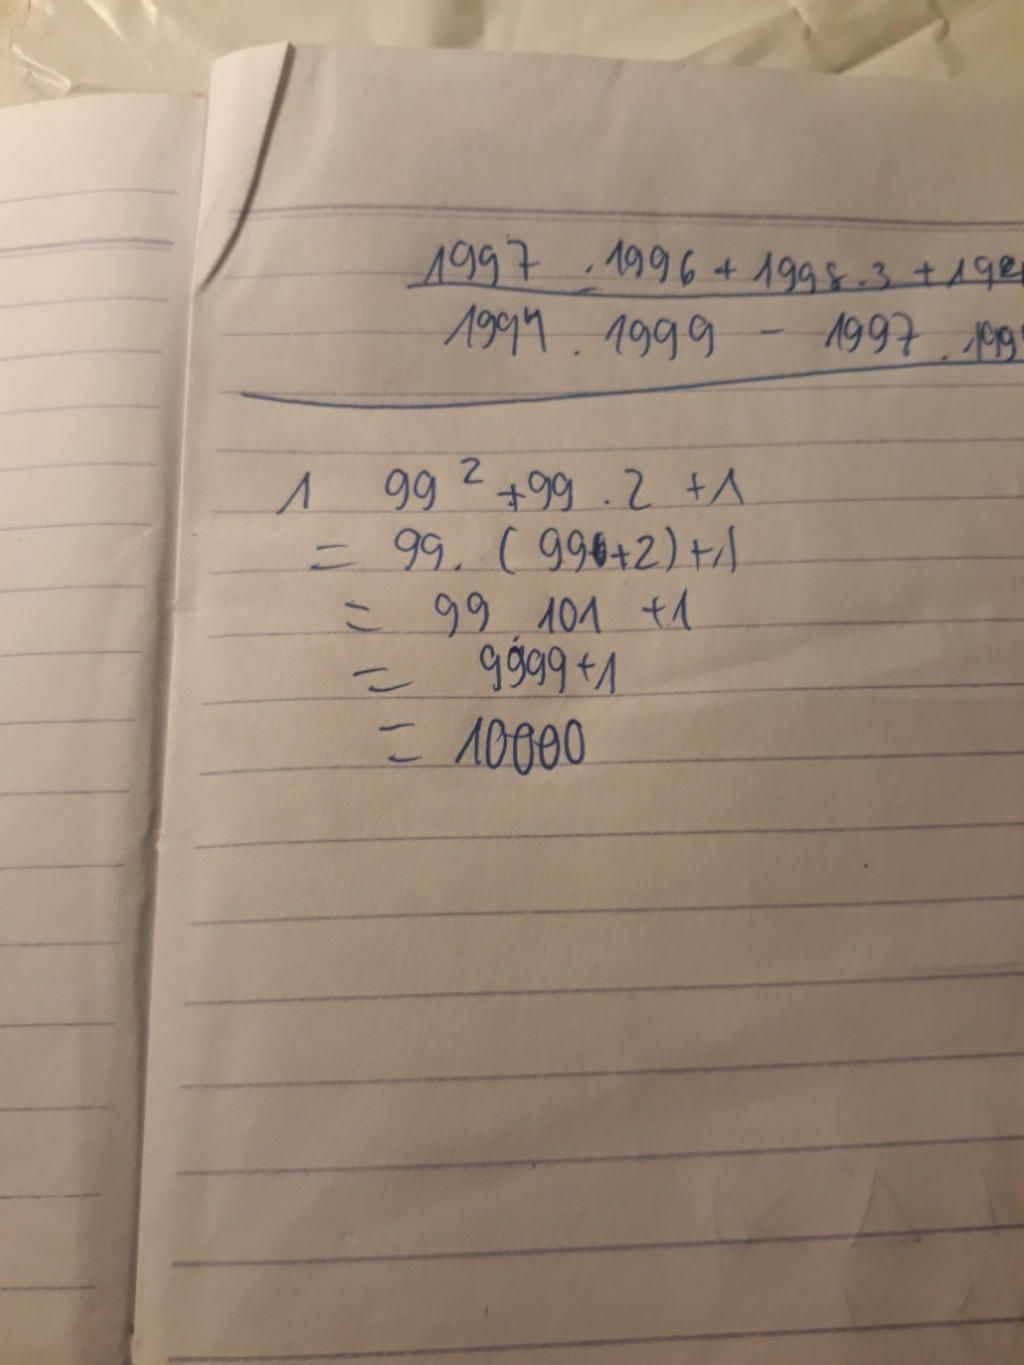 1997 . 1996 + 1998.3 + 19
1997 . 1999 - 1997 . 199
1 99² + 99 . 2 + 1
= 99. ( 99+2)+1
= 99 101 +1
= 9999+1
= 10000